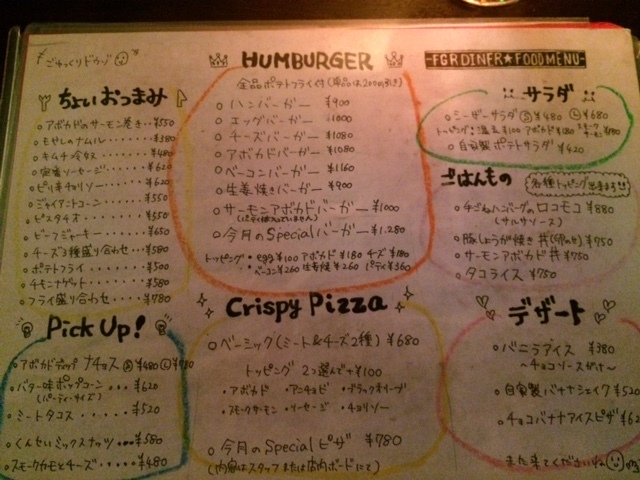 ごゆっくりドウゾ
ちょいおつまみ
アボカドのサーモン巻き ¥550
もやしのナムル ¥380
キムチ冷奴 ¥480
窯番ソーセージ ¥620
ピリ辛チョリソー ¥620
ジャイアントコーン ¥550
ピスタチオ ¥550
ビーフジャーキー ¥650
チーズ3種盛り合わせ ¥580
ポテトフライ ¥500
チキンナゲット ¥580
フライ盛り合わせ ¥780
Pick Up!
アボカドディップ ナチョス ¥480
バター味ポップコーン ¥620
(パーティーサイズ)
ミートタコス ¥520
くんせいミックスナッツ ¥580
スモークカモとチーズ ¥480
HUMBURGER
全品ポテトフライ付(単品は200円引き)
ハンバーガー ¥900
エッグバーガー ¥1000
チーズバーガー ¥1080
アボカドバーガー ¥1080
ベーコンバーガー ¥1160
生姜焼きバーガー ¥900
サーモンアボカドバーガー ¥1000
(パティは入っていません)
今月のSpecialバーガー ¥1.280
トッピング・egg ¥100 アボカド ¥180 チーズ ¥180
ベーコン ¥260 生姜焼 ¥260 パティ ¥360
Crispy Pizza
ベーシック(ミート&チーズ2種) ¥680
トッピング 2つ選んで+¥100
・アボカド ・アンチョビ ・ブラックオリーブ
・スモークサーモン ・ソーセージ ・チョリソー
今月のSpecialピザ ¥780
(内容はスタッフまたは店内ボードにて)
FGR DINER★FOOD MENU
サラダ
シーザーサラダ Ⓢ¥480 Ⓛ¥680
トッピング・温玉¥100 アボカド¥180 スモークサーモン
自家製ポテトサラダ ¥420
ごはんもの
各種トッピング出来ます!!
手ごねハンバーグのロコモコ ¥880
(サルサソース)
豚しょうが焼き丼 ¥750
サーモンアボカド丼 ¥750
タコライス ¥750
デザート
バニラアイス ¥380
〜チョコソースがけ〜
自家製バナナシェイク ¥520
チョコバナナアイスピザ
また来てくださいね